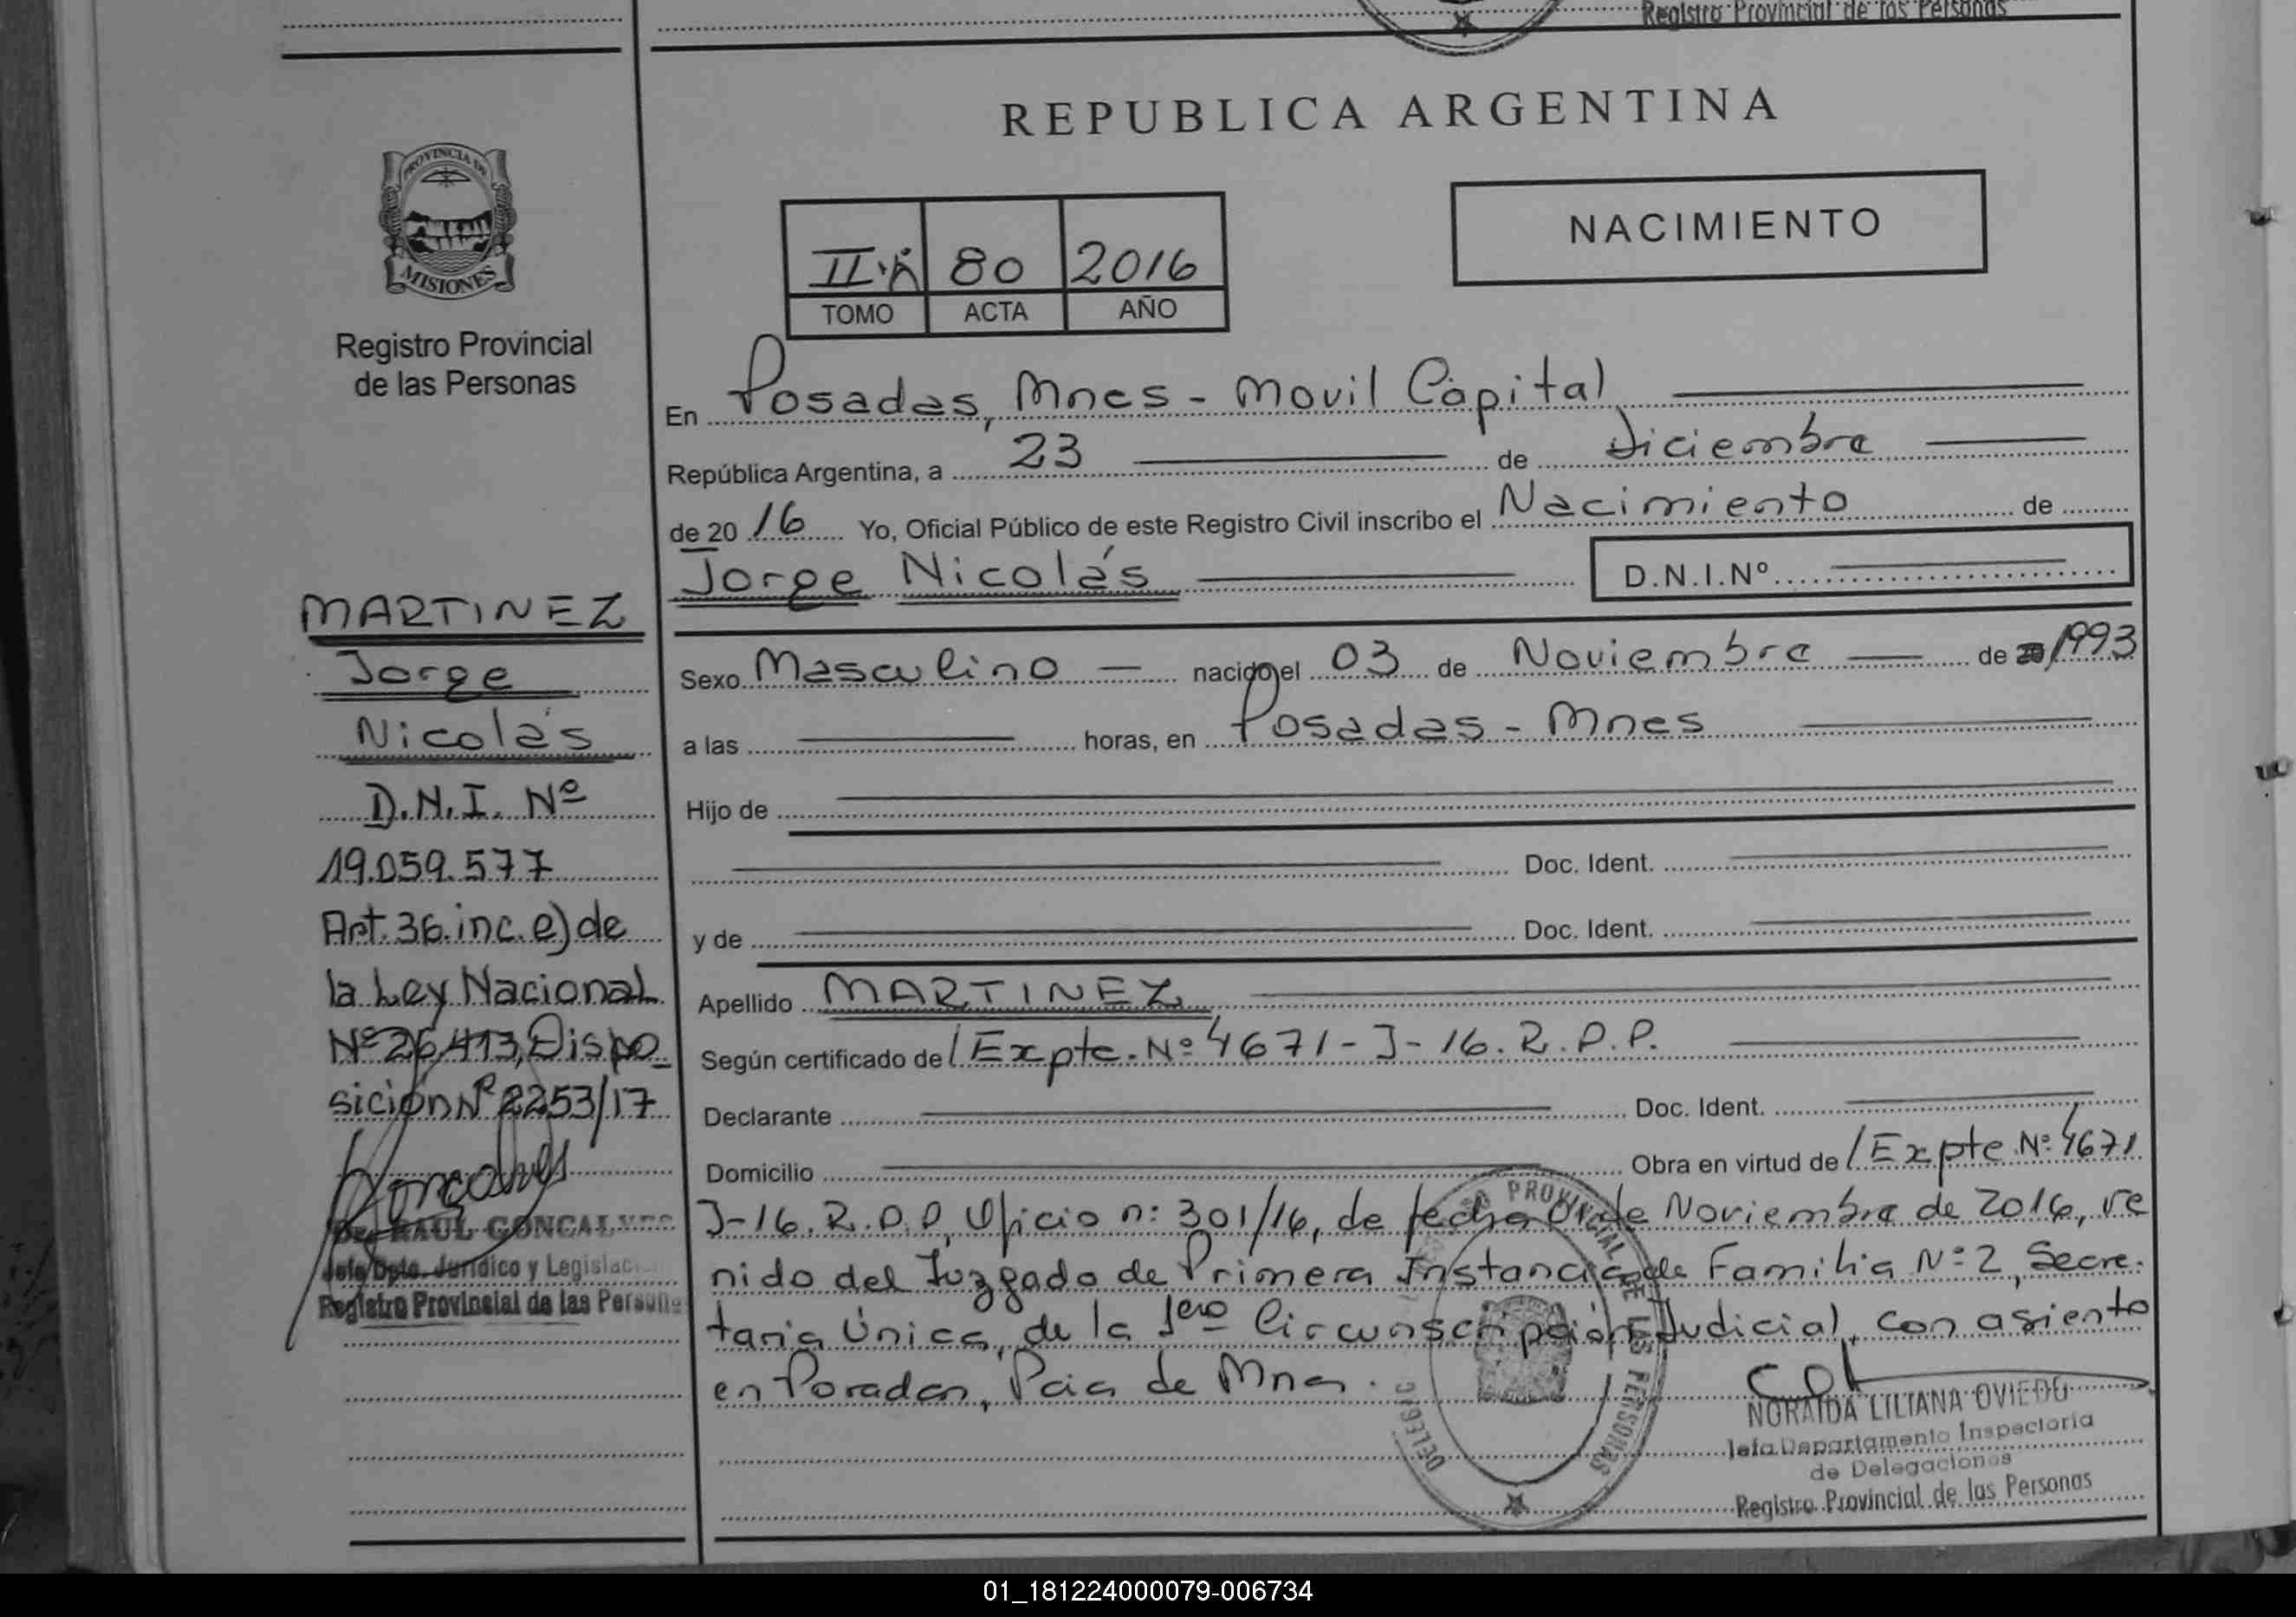 Registro Provincial de las Personas
REPUBLICA ARGENTINA
PROVINCIA DE
MISIONES
Registro Provincial
de las Personas
II 80 2016
TOMO ACTA AÑO
NACIMIENTO
En Posadas, Mnes - Movil Capital
República Argentina, a 23 de Diciembre
de 2016 Yo, Oficial Público de este Registro Civil inscribo el Nacimiento de
Jorge Nicolás D.N.I.Nº
Sexo Masculino nacido el 03 de Noviembre de 1993
a las horas, en Posadas - Mnes
Hijo de
Doc. Ident.
y de Doc. Ident.
Apellido MARTINEZ
Según certificado de / Expte. Nº 4671-J-16. R.P.P.
Declarante Doc. Ident.
Domicilio Obra en virtud de / Expte Nº 4671
J-16. R.P.P, Oficio n: 301/16, de fecha 01 de Noviembre de 2016, ve
nido del Juzgado de Primera Instancia de Familia Nº 2, Secre-
taria Única, de la 1era Circunscripción Judicial, con asiento
en Posadas, Pcia de Mnes.
MARTINEZ
Jorge
Nicolás
D.N.I. Nº
19.059.577
Art. 36. inc. e) de
la Ley Nacional
Nº 26.413, Dispo
sición Nº 2253/17
Dr. RAUL GONCALVES
Jefe Dpto. Jurídico y Legislac
Registro Provincial de las Persona
PROVINCIAL DE LAS PERSONAS
NORAIDA LILIANA OVIEDO
Jefa Departamento Inspectoria
de Delegaciones
Registro Provincial de las Personas
01_181224000079-006734